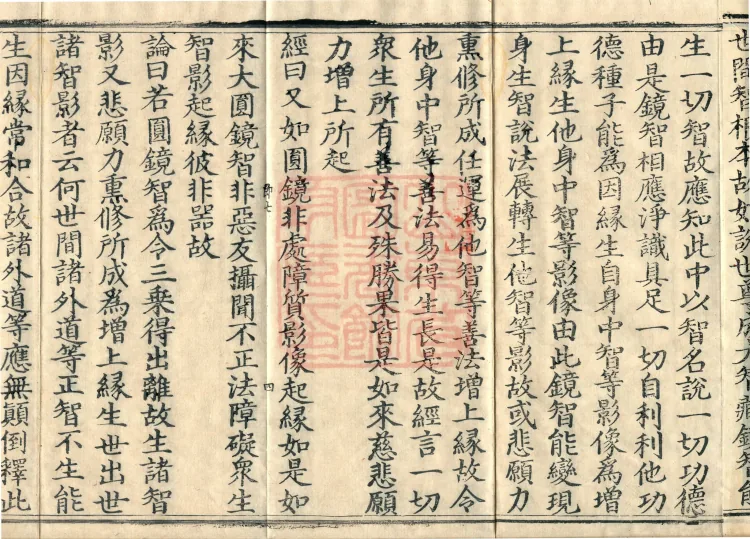 生一切智故應知此中以智名說一切功德
由是鏡智相應淨識具足一切自利利他功
德種子能為因緣生自身中智等影像為增
上緣生他身中智等影像由此鏡智能變現
身生智說法展轉生他智等影故或悲願力
熏修所成任運為他智等善法增上緣故令
他身中智等善法易得生長是故經言一切
衆生所有善法及殊勝果皆是如來慈悲願
力增上所起
經曰又如圓鏡非處障質影像起緣如是如
來大圓鏡智非惡友攝聞不正法障礙衆生
智影起緣彼非器故
四
論曰若圓鏡智為令三乗得出離故生諸智
影又悲願力熏修所成為增上緣生世出世
諸智影者云何世間諸外道等正智不生能
生因緣常和合故諸外道等應無顛倒釋此